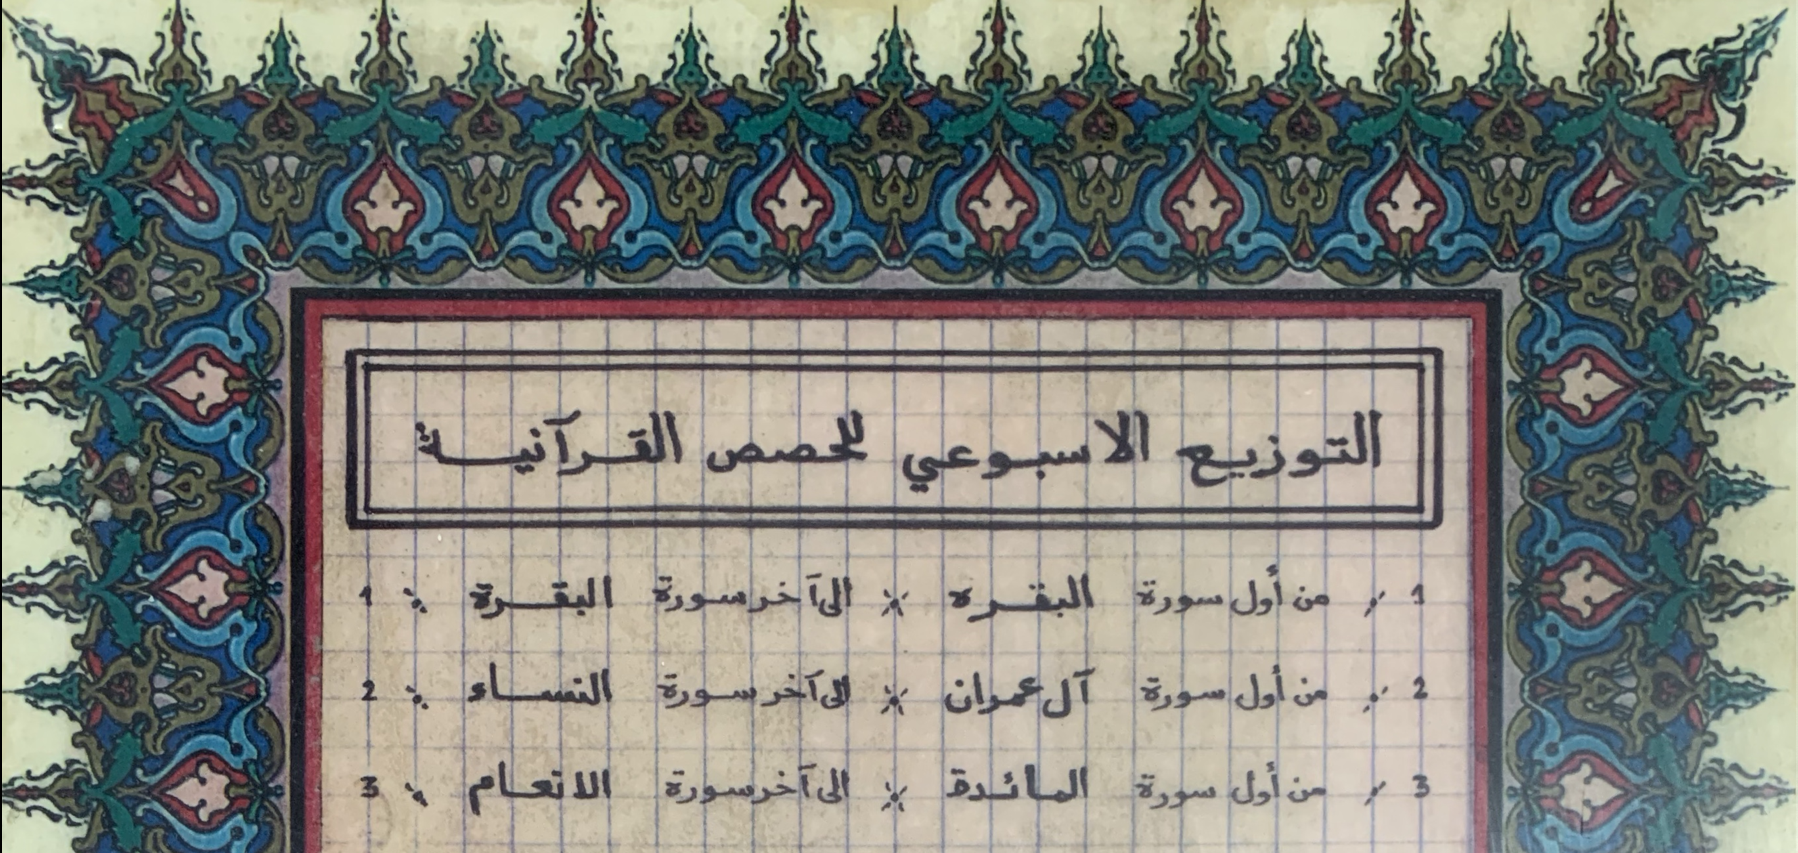 التوزيع الاسبوعي للحصص القرآنية
1 ٪ من أول سورة البقره ※ الى آخر سورة البقرة ٪ 1
2 ٪ من أول سورة آل عمران ※ الى آخر سورة النساء ٪ 2
3 ٪ من أول سورة المائدة ※ الى آخر سورة الانعام ٪ 3